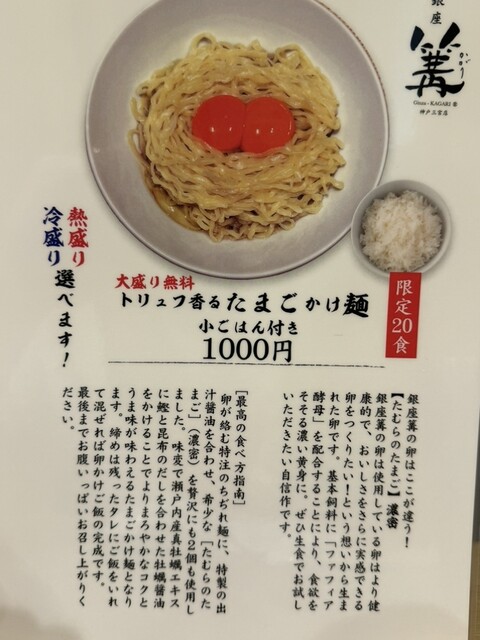 銀座
篝
かがり
Ginza・KAGARI
神戸三宮店
熱盛り
冷盛り
選べます!
大盛り無料
トリュフ香るたまごかけ麺
小ごはん付き
1000円
限定20食
銀座篝の卵はここが違う!
【たむらのたまご】濃密
銀座篝の卵は使用している卵はより健
康的で、おいしさをさらに実感できる
卵をつくりたい!という想いから生ま
れた卵です。基本飼料に「ファフィア
酵母」を配合することにより、食欲を
そそる濃い黄身に。ぜひ生食でお試し
いただきたい自信作です。
[最高の食べ方指南]
卵が絡む特注のちぢれ麺に、特製の出
汁醤油を合わせ、希少な[たむらのた
まご](濃密)を贅沢にも2個も使用し
ました。味変で瀬戸内産真牡蠣エキス
に鰹と昆布のだしを合わせた牡蠣醤油
をかけることでよりまろやかなコクと
うま味が味わえるたまごかけ麺となり
ます。締めは残ったタレにご飯をいれ
て混ぜれば卵かけご飯の完成です。
最後までお腹いっぱいお召し上がりく
ださい。